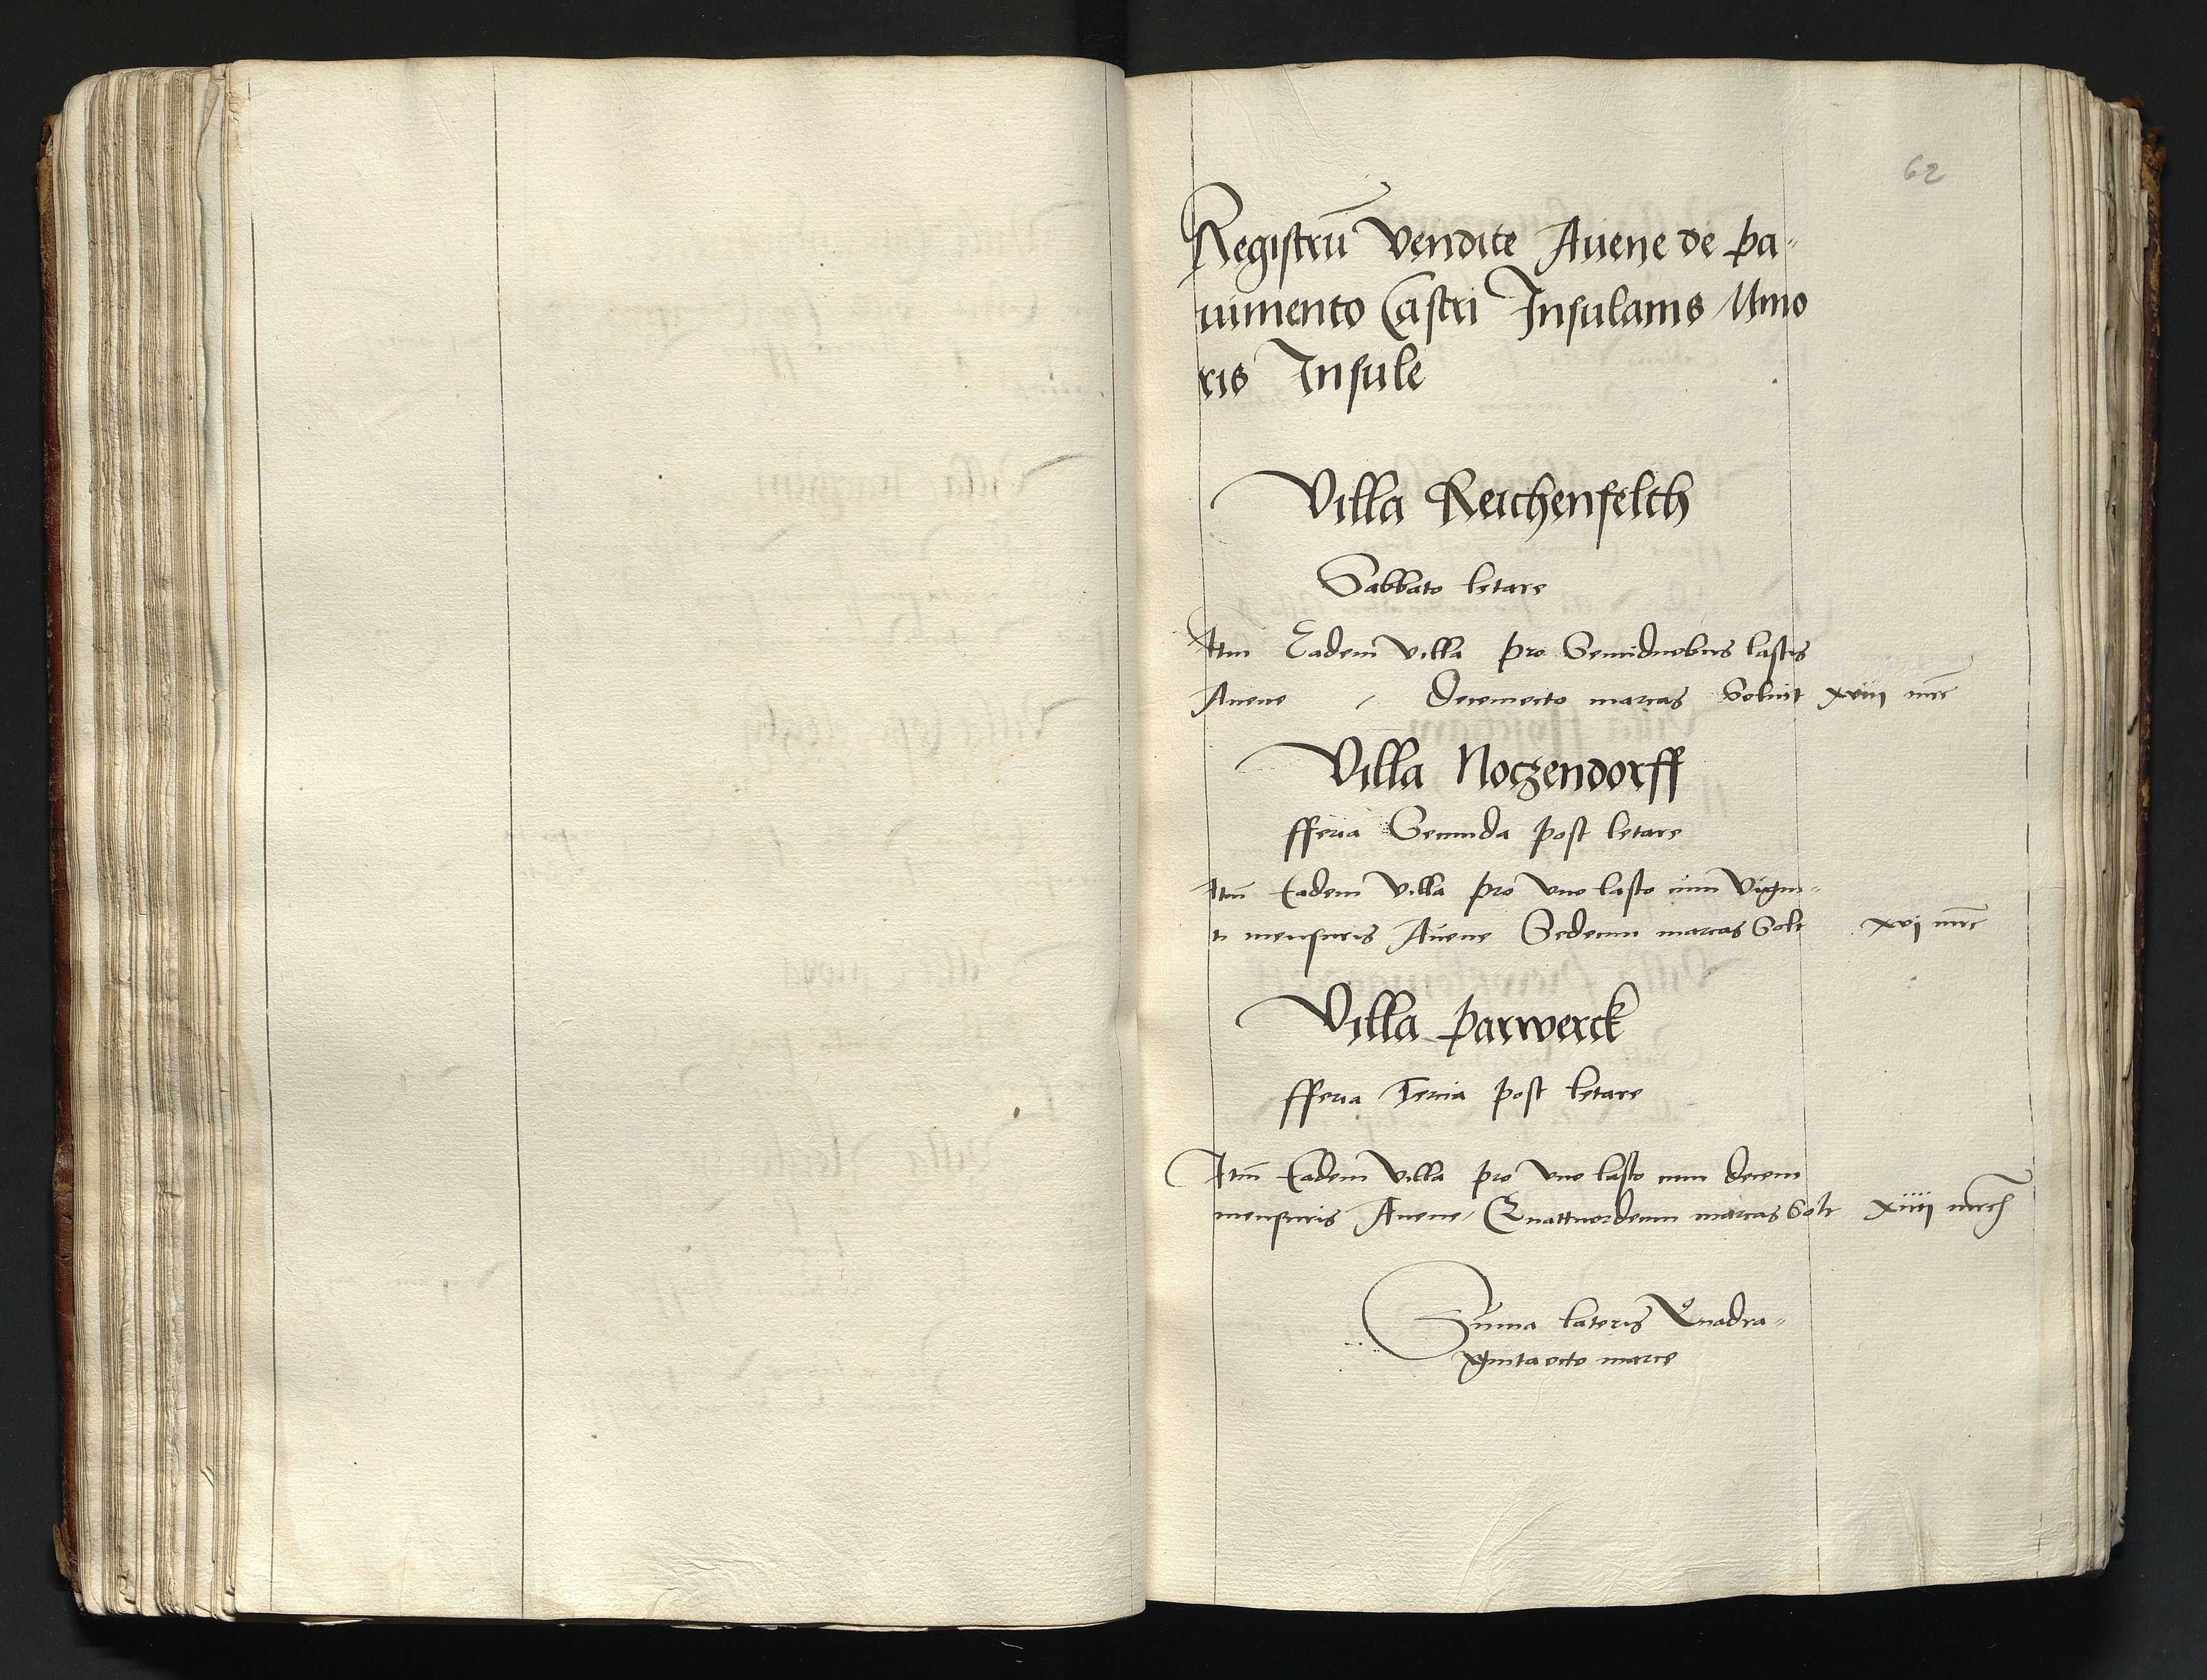 62
Registrū Vendite Auene de pa-
uimento Castri Insulanis Mino
ris Insule
Villa Reichenfelth
Sabbato letare
Itm Eadem Villa pro Semiduobus lastis
Auene / Decemocto marcas Soluit xviii mrc
Villa Noczendorff
fferia Secunda post letare
Itm Eadem Villa pro vno lasto cum Vigin-
ti mensuris Auene Sedecim marcas Solt xvj mrc
Villa parwerck
fferia Tercia post letare
Itm Eadem Villa pro vno lasto cum decem
mensuris Auene / Quattuordecim marcas Solt xiiij mrc
Suma lateris Quadra-
gintaocto marce